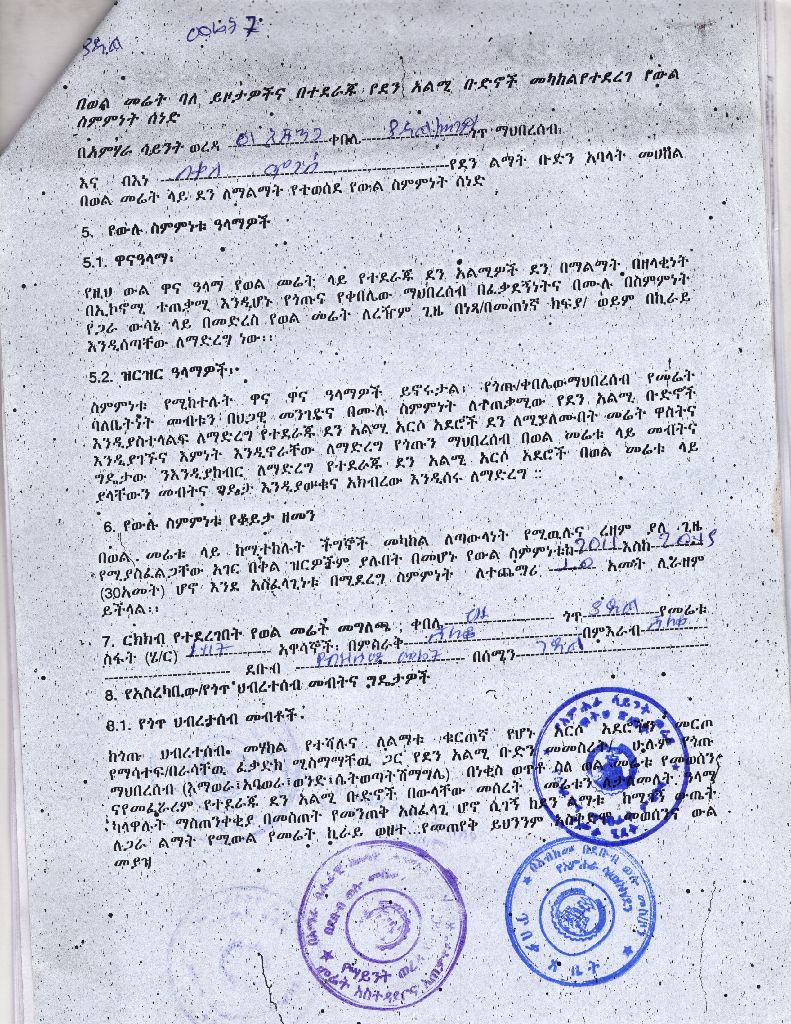 ገዳል መሬት 7
በወል መሬት ባለ ይዞታዎችና በተደራጁ የደን አልሚ ቡድኖች መካከልየተደረገ የውል
ስምምነት ሰነድ
በአምሃራ ሳይንት ወረዳ ቀበሌ ጎጥ ማህበረሰብ
እና በእነ የደን ልማት ቡድን አባላት መሀከል
በወል መሬት ላይ ደን ለማልማት የተወሰደ የውል ስምምነት ሰነድ
5. የውሉ ስምምነቱ ዓላማዎች
5.1. ዋናዓላማ፡
የዚህ ውል ዋና ዓላማ የወል መሬት ላይ የተደራጁ ደን አልሚዎች ደን በማልማት በዘላቂነት
በኢኮኖሚ ተጠቃሚ እንዲሆኑ የጎጡና የቀበሌው ማህበረሰብ በፈቃደኝነትና በሙሉ በስምምነት
የጋራ ውሳኔ ላይ በመድረስ የወል መሬት ለረዥም ጊዜ በነጻ/በመጠነኛ ክፍያ/ ወይም በኪራይ
እንዲሰጣቸው ለማድረግ ነው፡፡
5.2. ዝርዝር ዓላማዎች፡
ስምምነቱ የሚከተሉት ዋና ዋና ዓላማዎች ይኖሩታል፡ የጎጡ/ቀበሌውማህበረሰብ የመሬት
ባለቤትነት መብቱን በህጋዊ መንገድና በሙሉ ስምምነት ለተጠቃሚው የደን አልሚ ቡድኖች
እንዲያስተላልፍ ለማድረግ የተደራጁ ደን አልሚ አርሶ አደሮች ደን ለሚያለሙበት መሬት ዋስትና
እንዲያገኙና እምነት እንዲኖራቸው ለማድረግ የጎጡን ማህበረሰብ በወል መሬቱ ላይ መብትና
ግዴታው ንእንዲያከብር ለማድረግ የተደራጁ ደን አልሚ አርሶ አደሮች በወል መሬቱ ላይ
ያላቸውን መብትና ግዴታ እንዲያውቁና አክብረው እንዲሰሩ ለማድረግ ::
6. የውሉ ስምምነቱ የቆይታ ዘመን
በወል መሬቱ ላይ ከሚተከሉት ችግኞች መካከል ለጣውላነት የሚዉሉና ረዘም ያለ ጊዜ
የሚያስፈልጋቸው አገር በቀል ዝርዎችም ያሉበት በመሆኑ የውል ስምምነቱከ 2011 እስከ
(30አመት) ሆኖ እንደ አስፈላጊነቱ በሚደረግ ስምምነት ለተጨማሪ 10 አመት ሊራዘም
ይችላል፡፡
7. ርክክብ የተደረገበት የወል መሬት መግለጫ፡ ቀበሌ ጎጥ ገዳል የመሬቱ
ስፋት (ሄ/ር) አዋሳኞች፡ በምስራቅ በምእራብ
ደቡብ በሰሜን ገዳል
8. የአስረካቢው/የጎጥ ህብረተሰብ መብትና ግዴታዎች
8.1. የጎጥ ህብረታሰብ መብቶች
ከጎጡ ህብረተሰብ መሃከል የተሻሉና ለልማቱ ቁርጠኛ የሆኑ አርሶ አደሮችን መርጦ
የማሳተፍ/በራሳቸዉ ፈቃድክ ሚስማማቸዉ ጋር የደን አልሚ ቡድን መመስረት/ ሁሉም የጎጡ
ማህበረሰብ (እማወራ፣አባወራ፣ወንድ፣ሴትወጣትሽማግሌ) በነቂስ ወጥቶ ስለ ወል መሬቱ የመወሰን
ናየመፈራረም የተደራጁ ደን አልሚ ቡድኖች በውላቸው መሰረት መሬቱን ለታለመለት ዓላማ
ካላዋሉት ማስጠንቀቂያ በመስጠት የመንጠቅ አስፈላጊ ሆኖ ሲገኝ ከደን ልማቱ ከሚገኝ ውጤት
ለጋራ ልማት የሚውል የመሬት ኪራይ ወዘተ...የመጠየቅ ይህንንም አስቀድሞ መወሰንና ውል
መያዝ